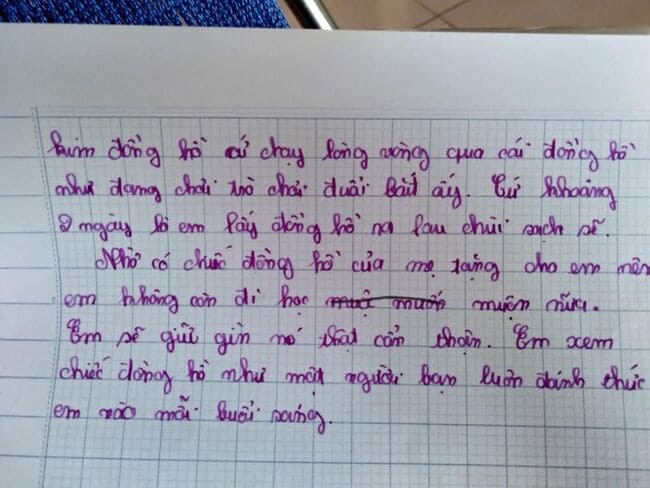 kim đồng hồ cứ chạy lòng vòng qua cái đồng hồ
như đang chơi trò chơi đuổi bắt ấy. Cứ khoảng
2 ngày là em lấy đồng hồ ra lau chùi sạch sẽ.
Nhờ có chiếc đồng hồ của mẹ tặng cho em nên
em không còn đi học muộn nữa.
Em sẽ giữ gìn nó thật cẩn thận. Em xem
chiếc đồng hồ như một người bạn luôn đánh thức
em vào mỗi buổi sáng.